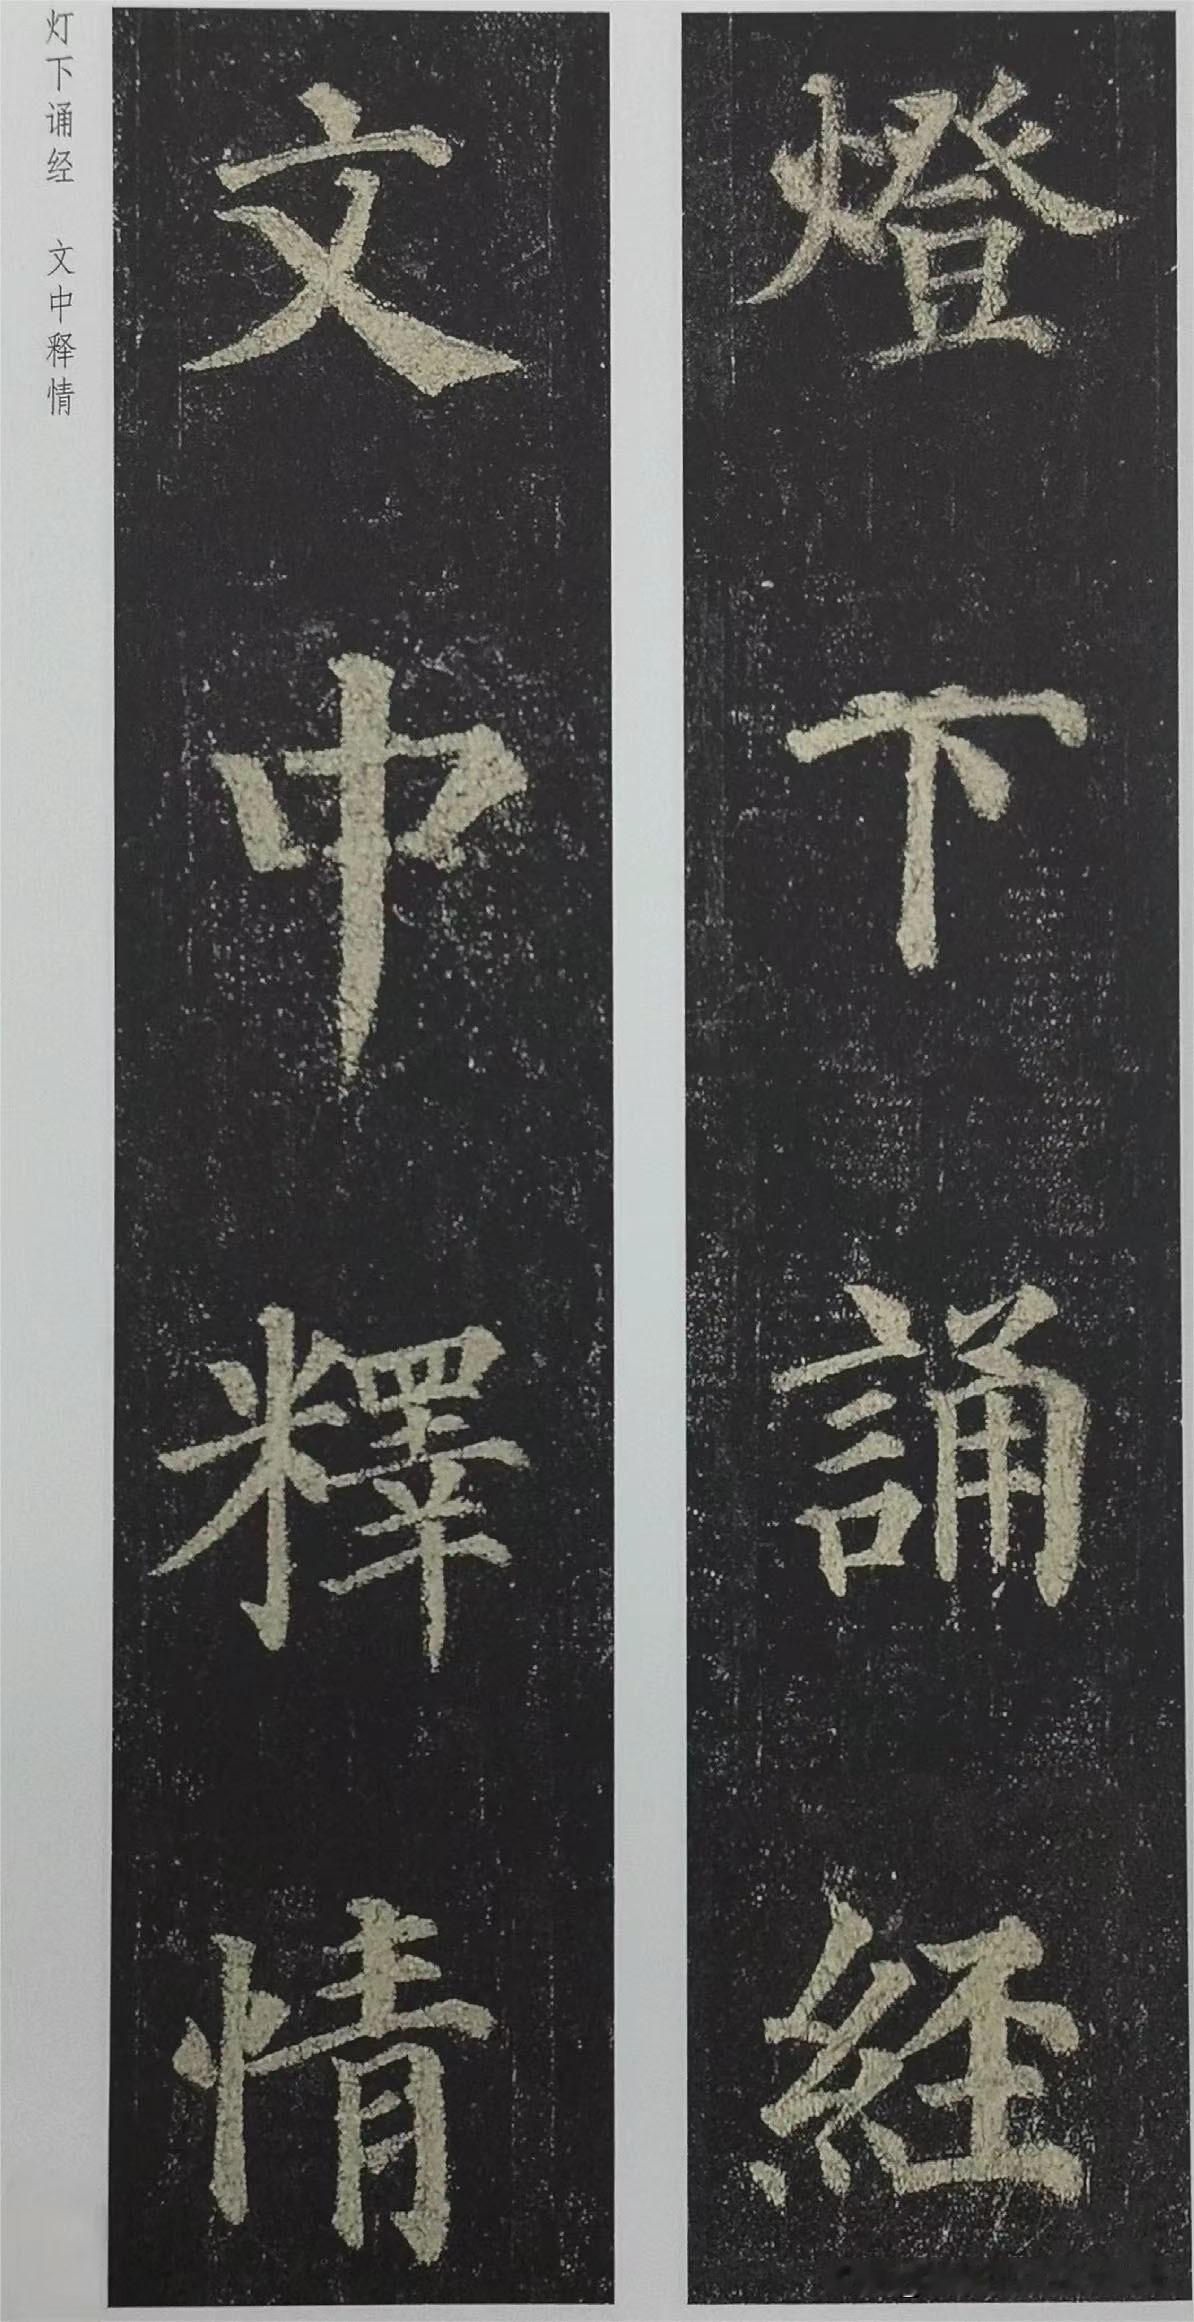 燈下誦経
文中釋情
灯下诵经 文中释情